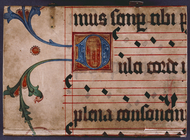 mus semp tibi p
ula corde i
plena consonan